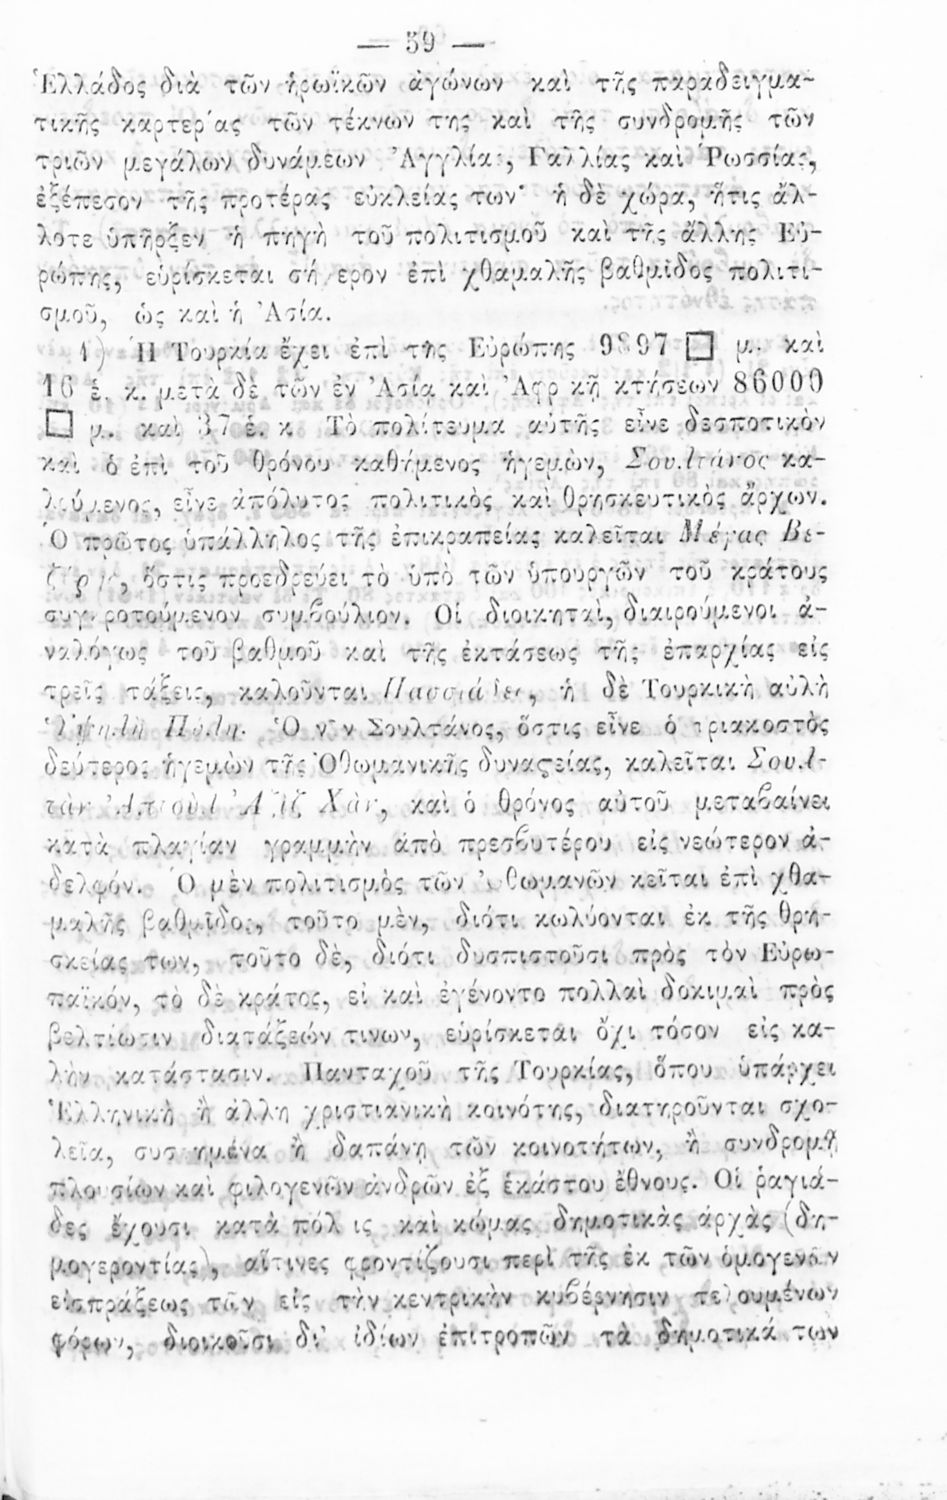 — 59 —
Ἑλλάδος διὰ τῶν ἡρωϊκῶν ἀγώνων καὶ τῆς παραδειγμα-
τικῆς καρτερίας τῶν τέκνων της καὶ τῆς συνδρομῆς τῶν
τριῶν μεγάλων δυνάμεων Ἀγγλίας, Γαλλίας καὶ Ῥωσσίας,
ἐξέπεσον τῆς προτέρας εὐκλείας των· ἡ δὲ χώρα, ἥτις ἄλ-
λοτε ὑπῆρξεν ἡ πηγὴ τοῦ πολιτισμοῦ καὶ τῆς ἄλλης Εὐ-
ρώπης, εὑρίσκεται σήμερον ἐπὶ χθαμαλῆς βαθμῖδος πολιτι-
σμοῦ, ὡς καὶ ἡ Ἀσία.
1) Ἡ Τουρκία ἔχει ἐπὶ τῆς Εὐρώπης 9897 □ μ. καὶ
16 ἑ. κ. μετὰ δὲ τῶν ἐν Ἀσίᾳ καὶ Ἀφρικῇ κτήσεων 86000
□ μ. καὶ 37 ἑ. κ Τὸ πολίτευμα αὐτῆς εἶνε δεσποτικὸν
καὶ ὁ ἐπὶ τοῦ θρόνου καθήμενος ἡγεμὼν, Σουλτάνος κα-
λούμενος, εἶνε ἀπόλυτος πολιτικὸς καὶ θρησκευτικὸς ἄρχων.
Ὁ πρῶτος ὑπάλληλος τῆς ἐπικρατείας καλεῖται Μέγας Βε-
ζύρης, ὅστις προεδρεύει τὸ ὑπὸ τῶν ὑπουργῶν τοῦ κράτους
συγκροτούμενον συμβούλιον. Οἱ διοικηταὶ, διαιρούμενοι ἀ-
ναλόγως τοῦ βαθμοῦ καὶ τῆς ἐκτάσεως τῆς ἐπαρχίας εἰς
τρεῖς τάξεις, καλοῦνται Πασσιάδες, ἡ δὲ Τουρκικὴ αὐλὴ
Ὑψηλὴ Πύλη. Ὁ νῦν Σουλτάνος, ὅστις εἶνε ὁ τριακοστὸς
δεύτερος ἡγεμὼν τῆς Ὀθωμανικῆς δυναστείας, καλεῖται Σουλ-
τὰν Ἀπτοὺλ Ἀζὶζ Χὰν, καὶ ὁ θρόνος αὐτοῦ μεταβαίνει
κατὰ πλαγίαν γραμμὴν ἀπὸ πρεσβυτέρου εἰς νεώτερον ἀ-
δελφόν. Ὁ μὲν πολιτισμὸς τῶν Ὀθωμανῶν κεῖται ἐπὶ χθα-
μαλῆς βαθμῖδος, τοῦτο μὲν, διότι κωλύονται ἐκ τῆς θρη-
σκείας των, τοῦτο δὲ, διότι δυσπιστοῦσι πρὸς τὸν Εὐρω-
παϊκόν, τὸ δὲ κράτος, εἰ καὶ ἐγένοντο πολλαὶ δοκιμαὶ πρὸς
βελτίωσιν διατάξεών τινων, εὑρίσκεται ὄχι τόσον εἰς κα-
λὴν κατάστασιν. Πανταχοῦ τῆς Τουρκίας, ὅπου ὑπάρχει
Ἑλληνικὴ ἢ ἄλλη χριστιανικὴ κοινότης, διατηροῦνται σχο-
λεῖα, συστημένα ἢ δαπάνῃ τῶν κοινοτήτων, ἢ συνδρομῇ
πλουσίων καὶ φιλογενῶν ἀνδρῶν ἐξ ἑκάστου ἔθνους. Οἱ ῥαγιά-
δες ἔχουσι κατὰ πόλεις καὶ κώμας δημοτικὰς ἀρχὰς (δη-
μογεροντίας), αἵτινες φροντίζουσι περὶ τῆς ἐκ τῶν ὁμογενῶν
εἰσπράξεως τῶν εἰς τὴν κεντρικὴν κυβέρνησιν τελουμένων
φόρων, διοικοῦσι δι' ἰδίων ἐπιτροπῶν τὰ δημοτικά των